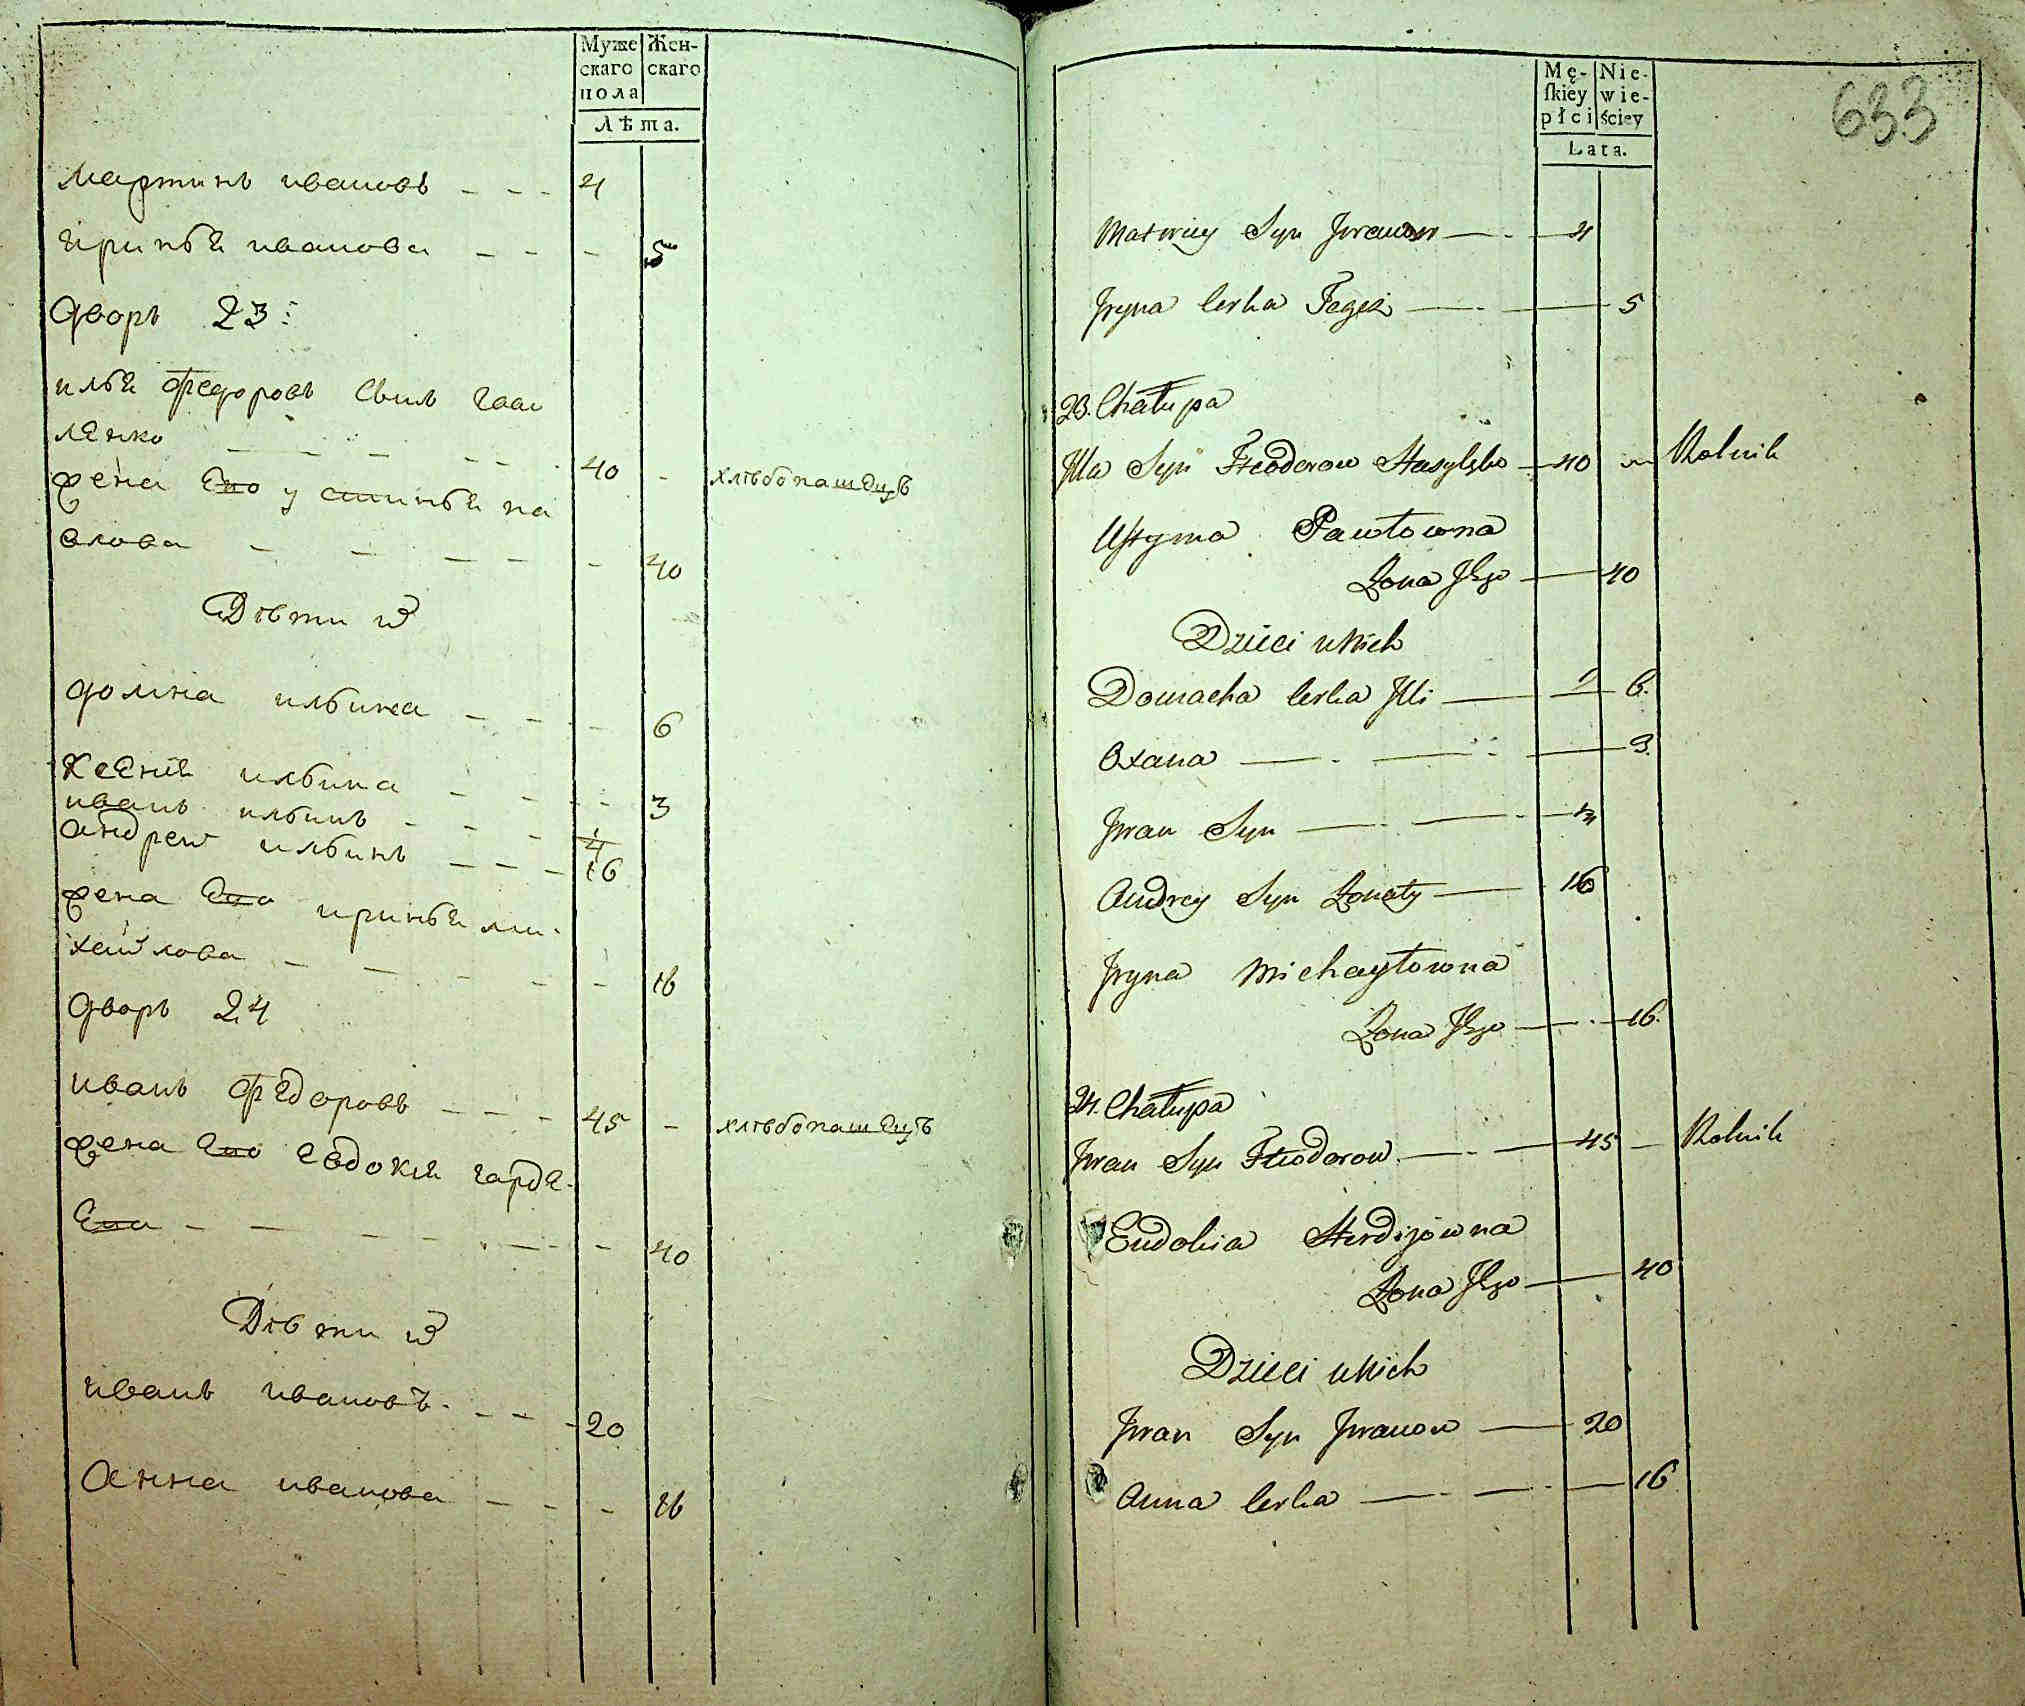 Муже
скаго
пола
Жен-
скаго
Лѣта.
мартинъ ивановъ - - - 4
ирина иванова - - - 5
дворъ 23:
илья федоровъ сынъ
ленко - - - - - 40 - хлѣбопашецъ
жена его устинья па
влова - - - - - 40
Дѣти их
домна ильина - - - 6
ксения ильина - - - - 3
иванъ ильинъ - - - 4
андрей ильинъ - - - 16
жена его иринья ми-
хайлова - - - - - - 16
дворъ 24
иванъ федоровъ - - - 45 - хлѣбопашецъ
жена его евдокия горде-
ева - - - - - - - 40
Дѣти их
иванъ ивановъ - - - 20
анна иванова - - - - 16
633
Mę-
skiey
płci
Nie-
wie-
ściey
Lata.
Matwiey Syn Jwanow — 4
Jryna Corka Tegoż — 5
23. Chałupa
Jlla Syn Fteodorow — 40 Rolnik
Ustyma Pawłowna
Żona Jego — 40
Dzieci u Nich
Domacha Corka Jlli — 6.
Oxana — 3.
Jwan Syn — 4
Andrey Syn Żonaty — 16
Jryna Michayłowna
Żona Jego — 16.
24. Chałupa
Jwan Syn Fteodorow — 45 — Rolnik
Eudokia Hordijowna
Żona Jego — 40
Dzieci u Nich
Jwan Syn Jwanow — 20
Anna Corka — 16